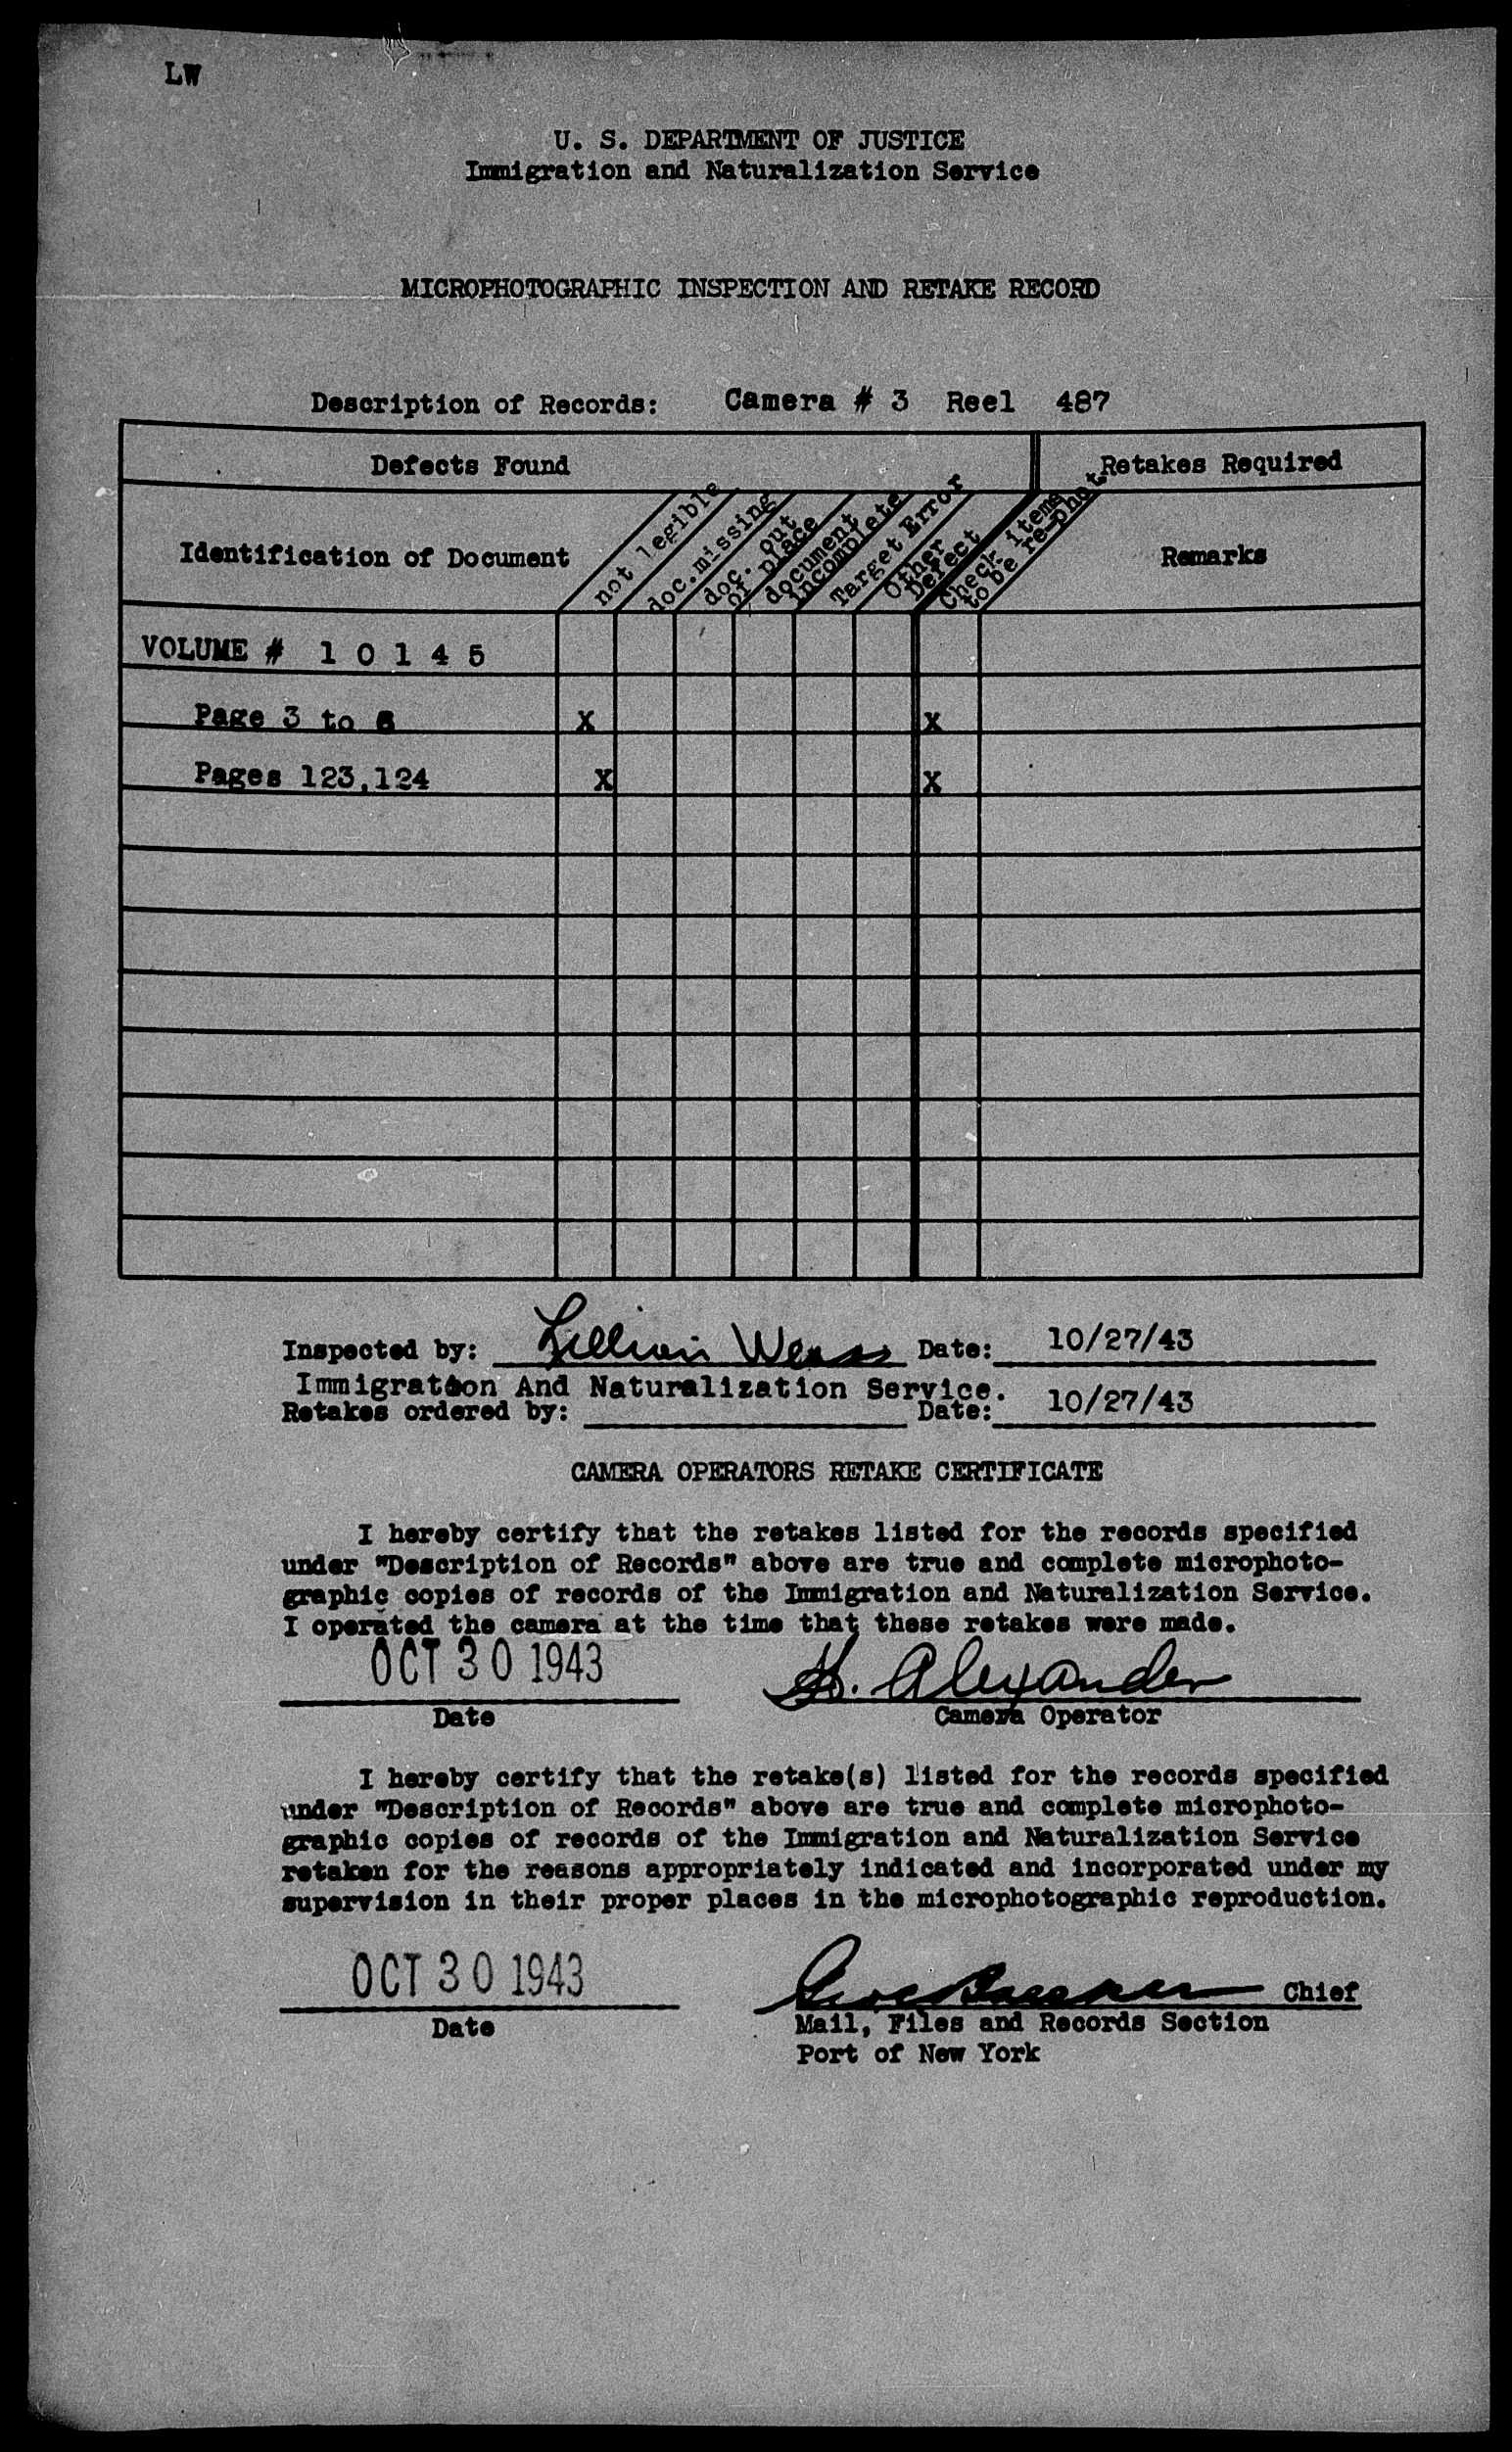 LW
U. S. DEPARTMENT OF JUSTICE
Immigration and Naturalization Service
MICROPHOTOGRAPHIC INSPECTION AND RETAKE RECORD
Description of Records: Camera # 3 Reel 487
Defects Found
Retakes Required
Identification of Document
not legible
doc.missing
doc. out
of place
document
incomplete
Target Error
Other
Defect
Check items
to be re-phot
Remarks
VOLUME # 1 0 1 4 5
Page 3 to X X
Pages 123,124 X X
Inspected by: Lillian Weiss Date: 10/27/43
Immigration And Naturalization Service.
Retakes ordered by: Date: 10/27/43
CAMERA OPERATORS RETAKE CERTIFICATE
I hereby certify that the retakes listed for the records specified
under "Description of Records" above are true and complete microphoto-
graphic copies of records of the Immigration and Naturalization Service.
I operated the camera at the time that these retakes were made.
OCT 30 1943 Alexander
Date Camera Operator
I hereby certify that the retake(s) listed for the records specified
under "Description of Records" above are true and complete microphoto-
graphic copies of records of the Immigration and Naturalization Service
retaken for the reasons appropriately indicated and incorporated under my
supervision in their proper places in the microphotographic reproduction.
OCT 30 1943 Chief
Date Mail, Files and Records Section
Port of New York